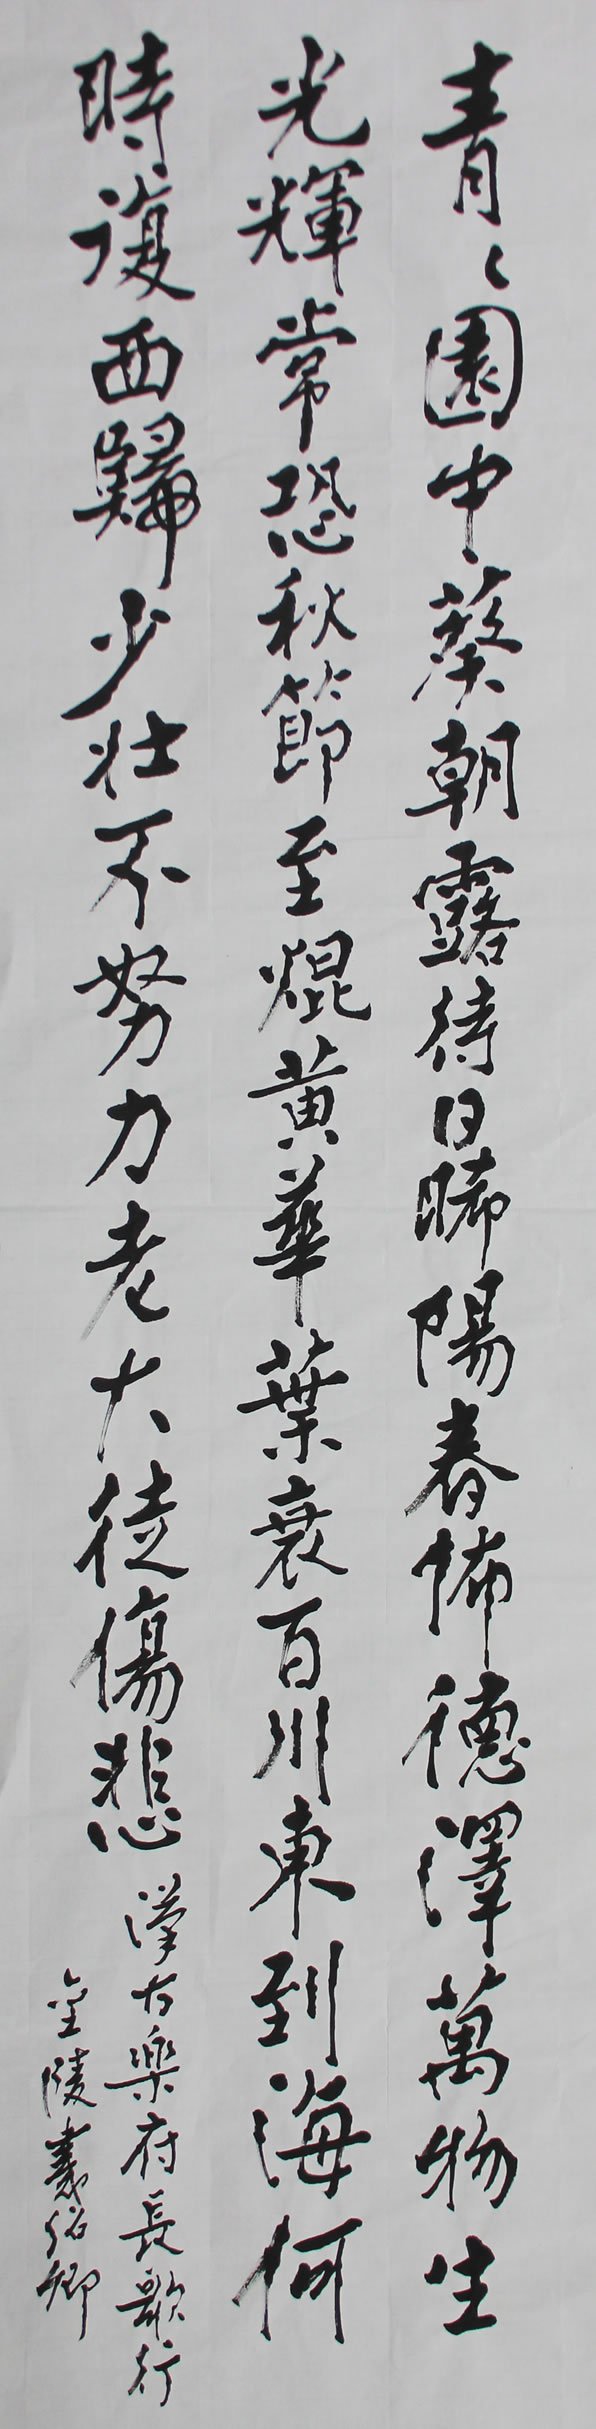 青々園中葵朝露待日晞陽春佈德澤萬物生
光輝常恐秋節至焜黃華葉衰百川東到海何
時復西歸少壯不努力老大徒傷悲
漢古樂府長歌行
金陵義紹卿